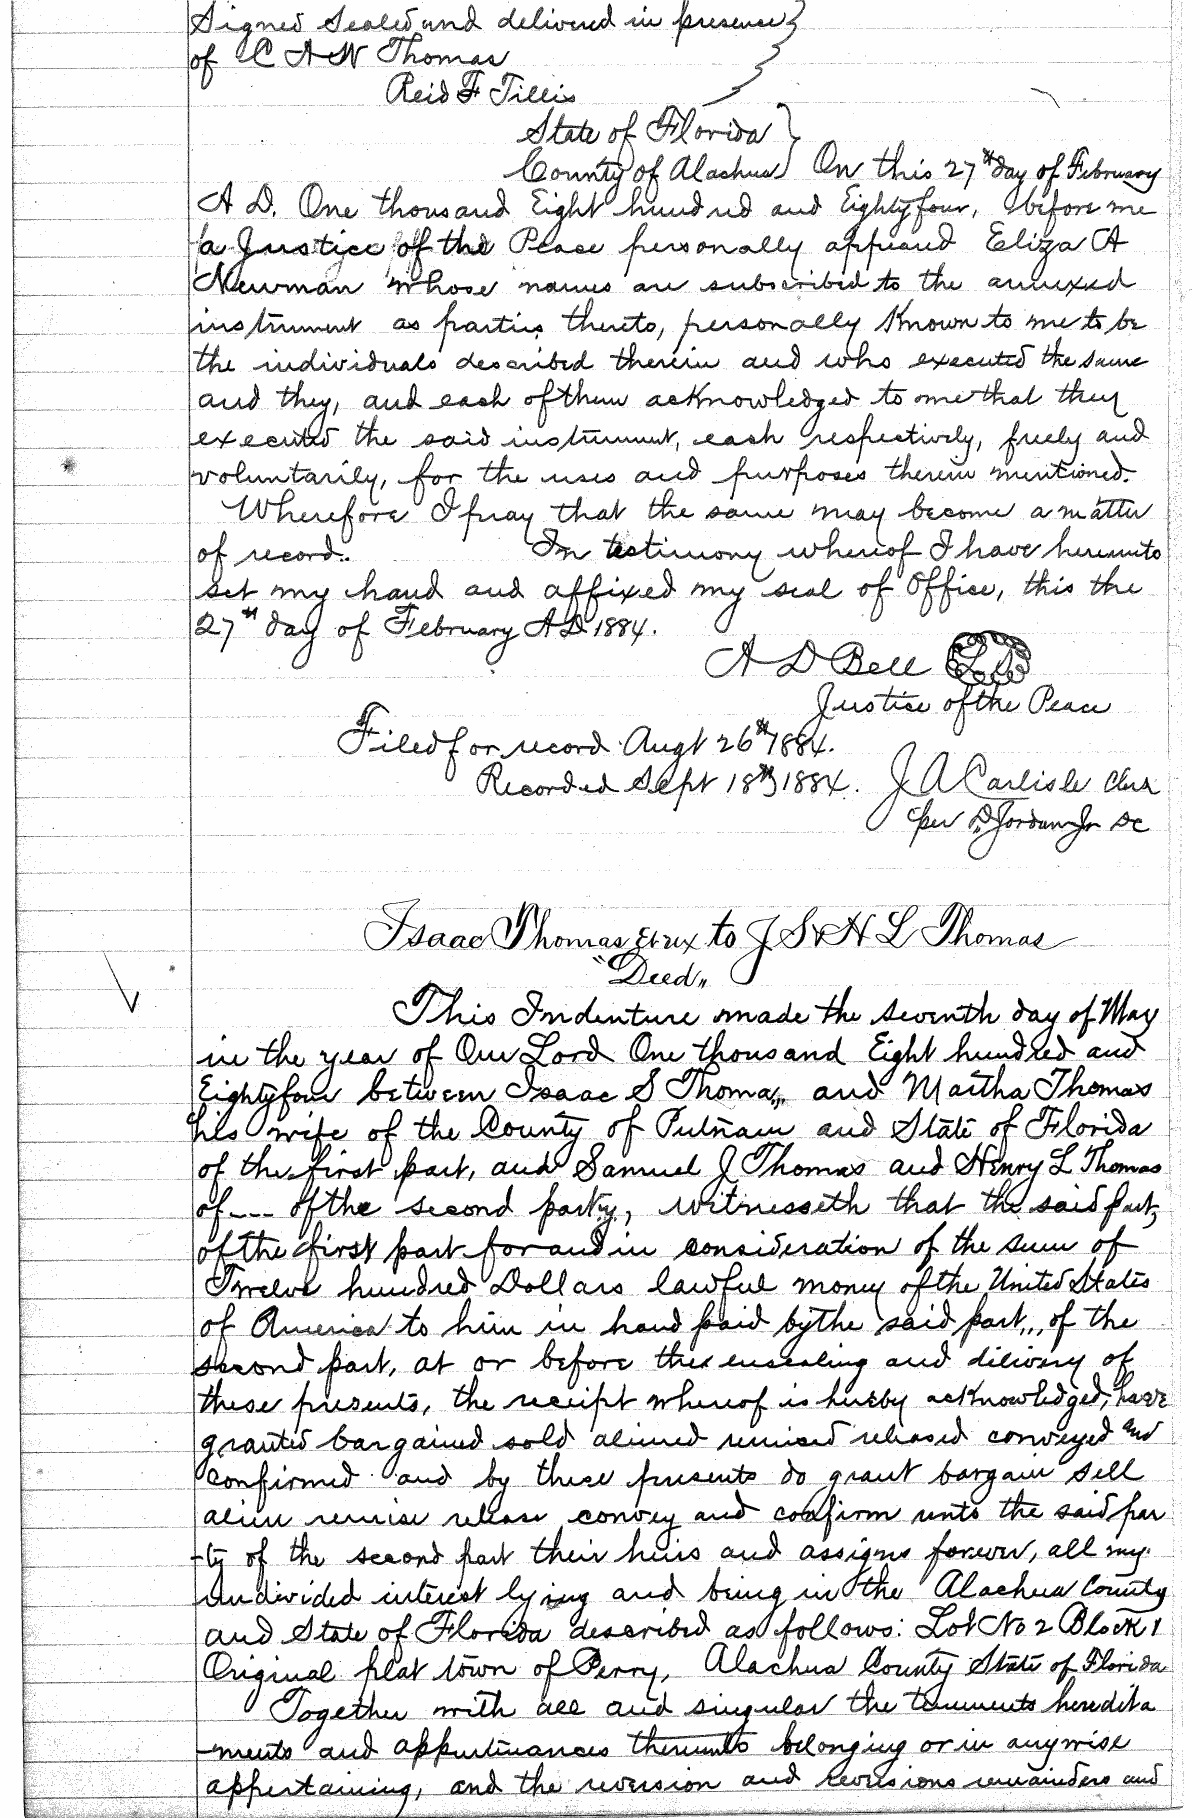 Signed Sealed and delivered in presence
of C A W Thomas
Reid F Tillis
State of Florida
County of Alachua On this 27th day of February
A D. One thousand Eight hundred and Eighty four, before me
a Justice of the Peace personally appeared Eliza A
Newman whose names are subscribed to the annexed
instrument as parties thereto, personally Known to me to be
the individuals described therein and who executed the same
and they, and each of them acknowledged to me that they
executed the said instrument, each respectively, freely and
voluntarily, for the uses and purposes therein mentioned.
Wherefore I pray that the same may become a matter
of record. In testimony whereof I have hereunto
set my hand and affixed my seal of Office, this the
27th day of February A D 1884.
A D Bell L S
Justice of the Peace
Filed for record Augt 26th 1884.
Recorded Sept 18th 1884. J A Carlisle Clerk
per D. Jordan Jr DC
Isaac Thomas et ux to J S & H L Thomas
"Deed"
This Indenture made the seventh day of May
in the year of Our Lord One thousand Eight hundred and
Eighty four between Isaac S Thomas,, and Martha Thomas
his wife of the County of Putnam and State of Florida
of the first part, and Samuel J Thomas and Henry L Thomas
of --- of the second party, witnesseth that the said part,
of the first part for and in consideration of the sum of
Twelve hundred Dollars lawful money of the United States
of America to him in hand paid by the said part,,, of the
second part, at or before the ensealing and delivery of
these presents, the receipt whereof is hereby acknowledged, have
granted bargained sold aliened remised released conveyed and
confirmed and by these presents do grant bargain sell
alien remise release convey and confirm unto the said par
-ty of the second part their heirs and assigns forever, all my
undivided interest lying and being in the Alachua County
and State of Florida described as follows: Lot No 2 Block 1
Original plat town of Perry, Alachua County State of Florida
Together with all and singular the tenements heredita
-ments and appurtinances thereunto belonging or in anywise
appertaining, and the reversion and reversions remainders and